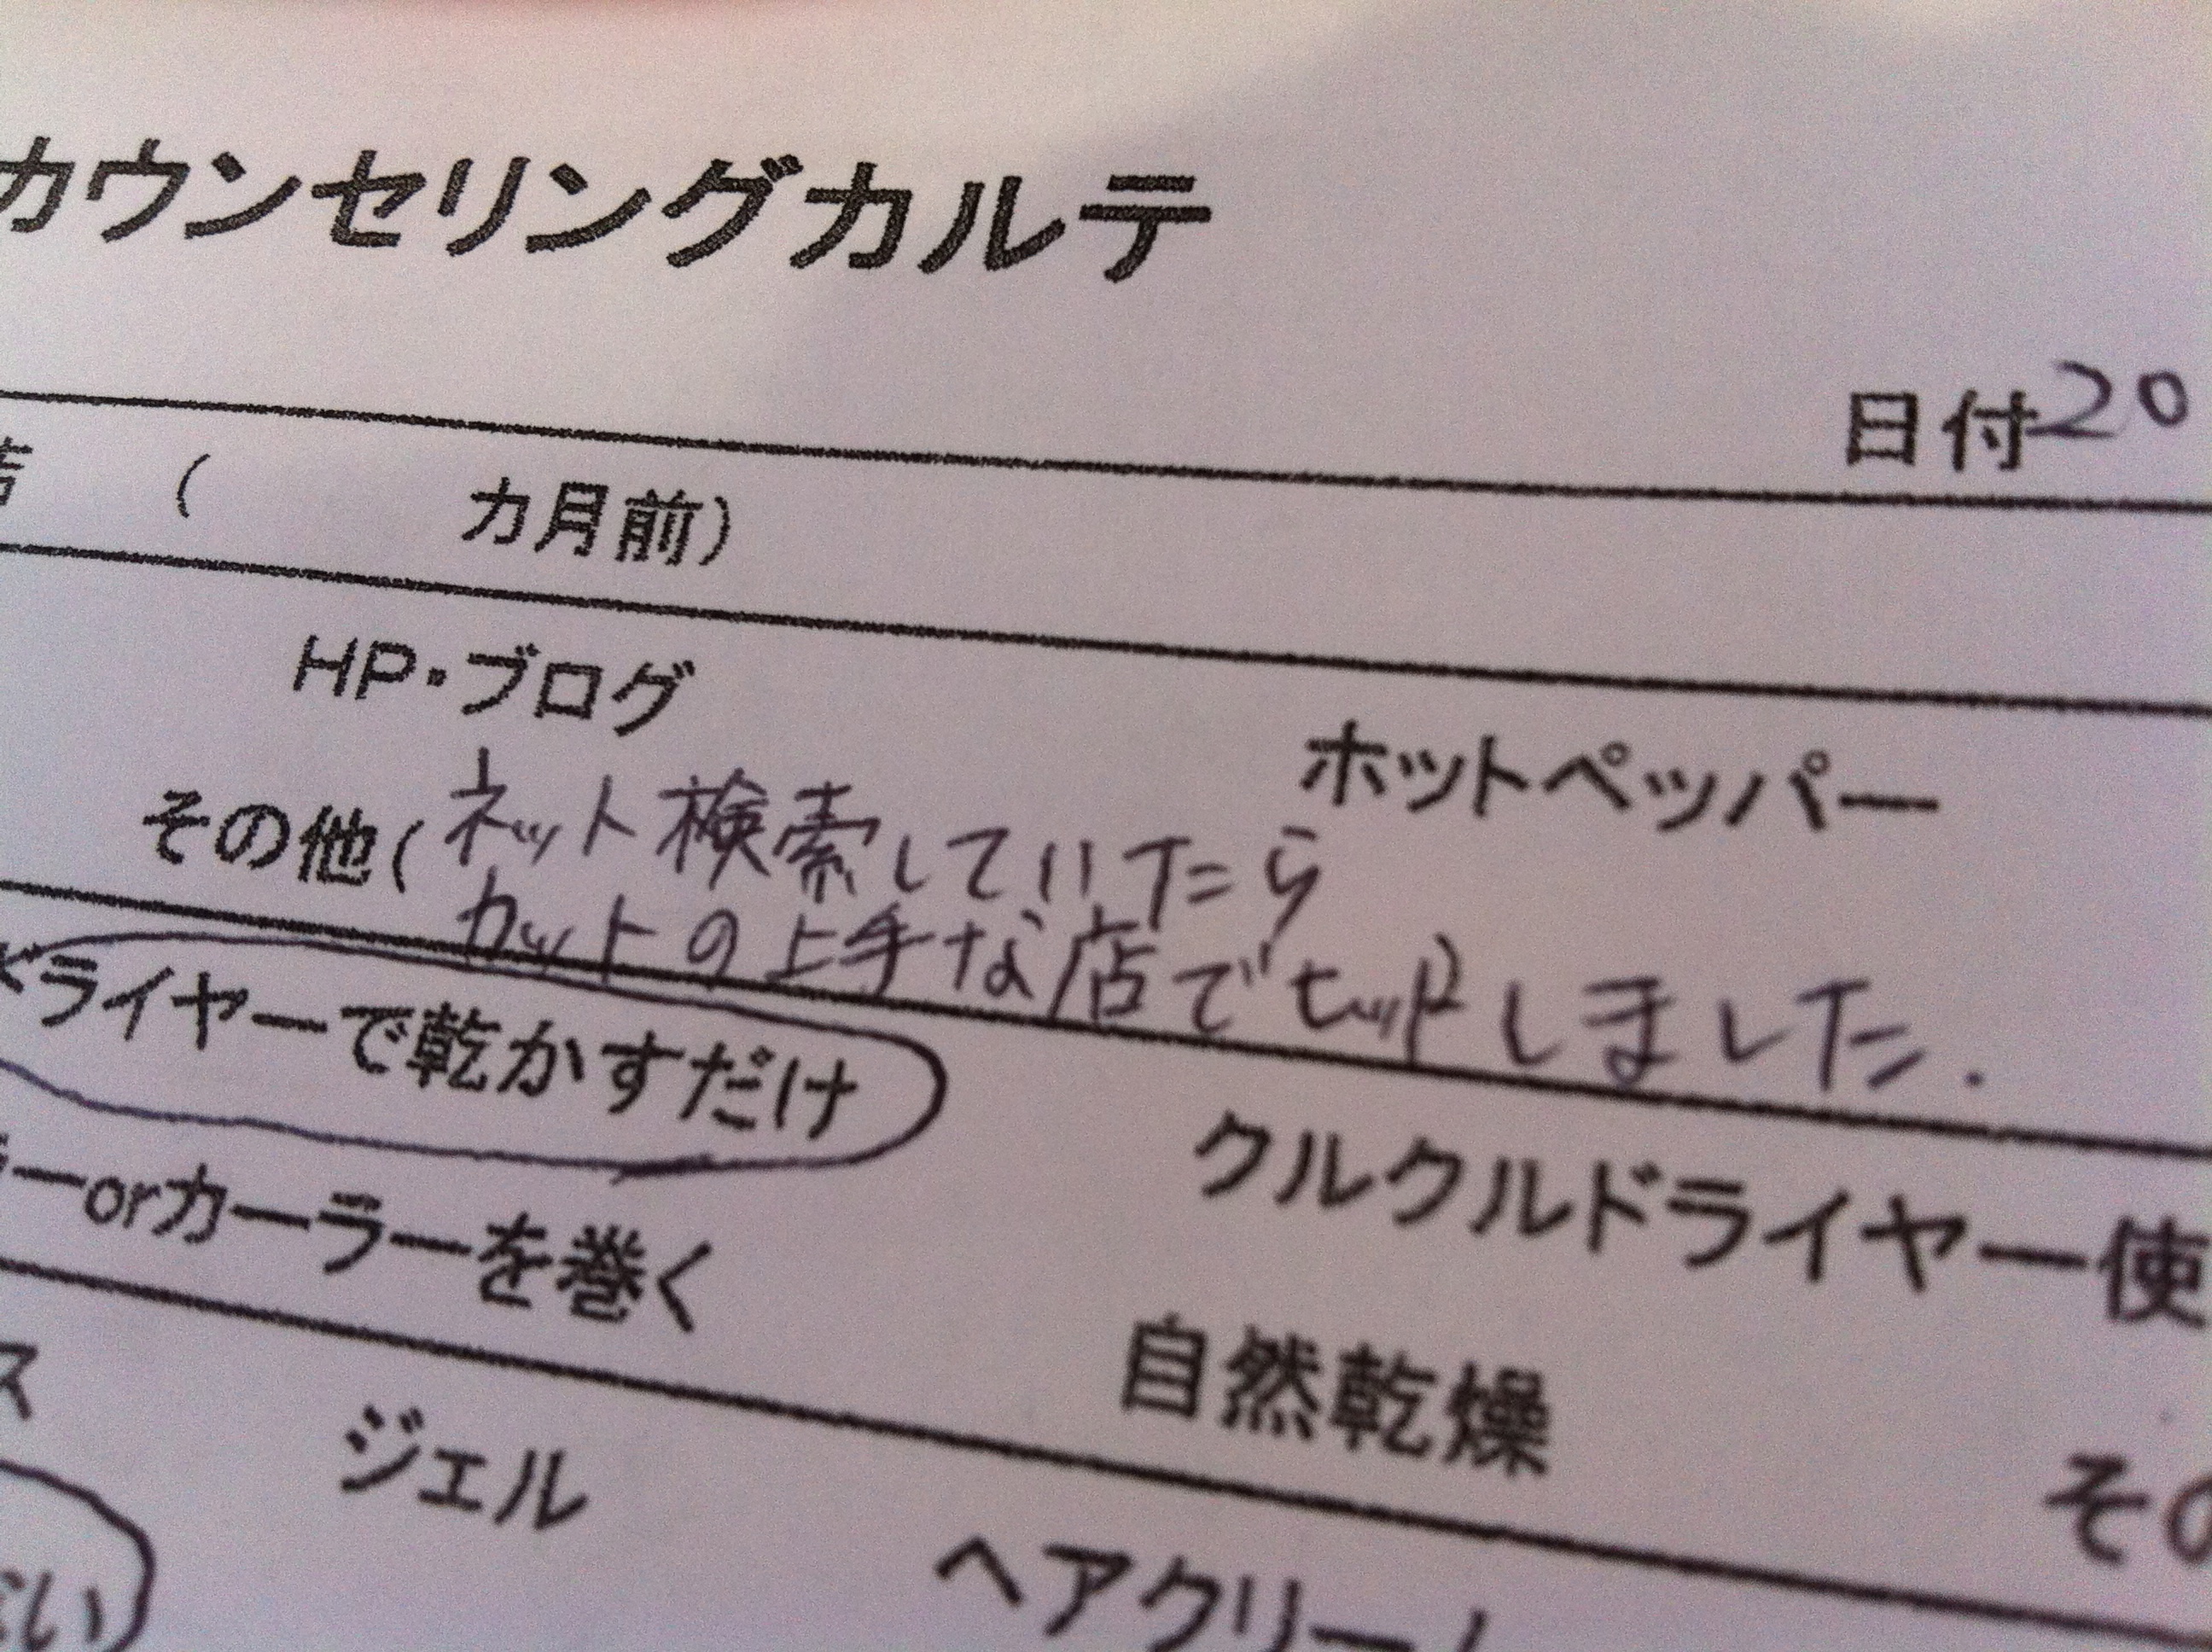 カウンセリングカルテ
日付20
店 ( カ月前)
HP・ブログ
ホットペッパー
その他(ネット検索していたら
カットの上手な店でヒットしました.
ドライヤーで乾かすだけ
クルクルドライヤー使
ーorカーラーを巻く
自然乾燥
その
ス
ジェル
ヘアクリーム